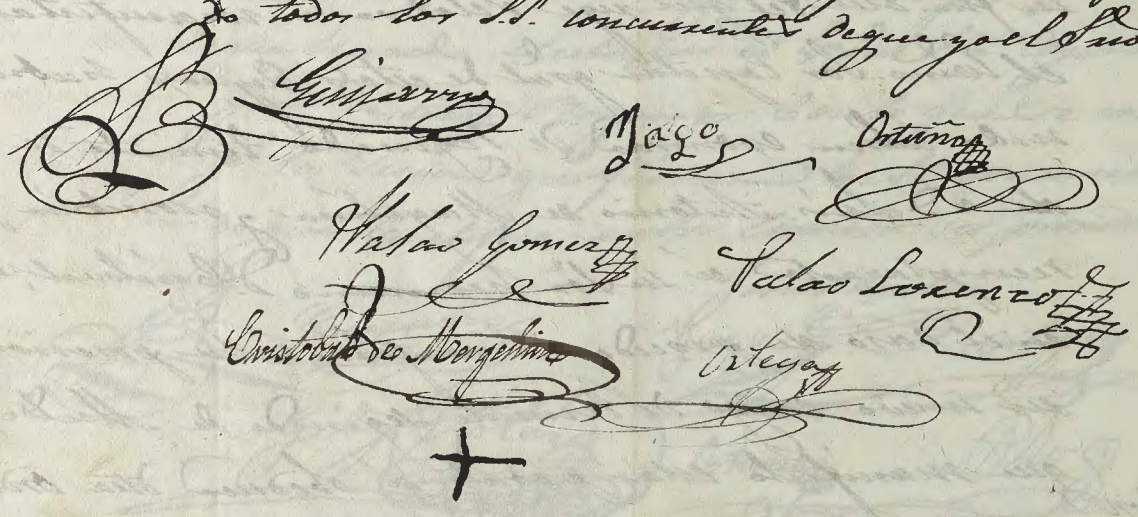 do todos los S.S. concurrentes de que yo el Srio
Guijarro
Yago
Ortuño
Palao Gomez
Palao Lorenzo
Cristobal de Mergelina
Ortega